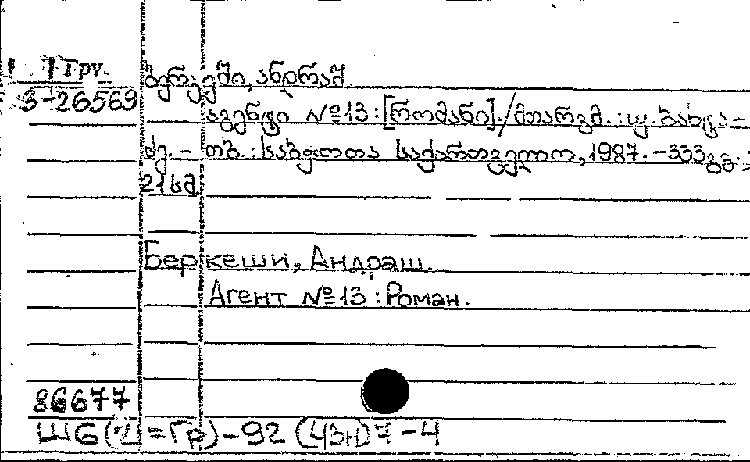 Гру.
3-26569
ბერკეში, ანდრაშ
აგენტი №13 : [რომანი]. / მთარგმ. : უ. ბახტა-
ძე. - თბ. : საბჭოთა საქართველო, 1987. - 333გვ. ;
21სმ
Беркеши, Андраш.
Агент №13 : Роман.
86677
Ш6(2=Гр)-92 (4Вн)7-4